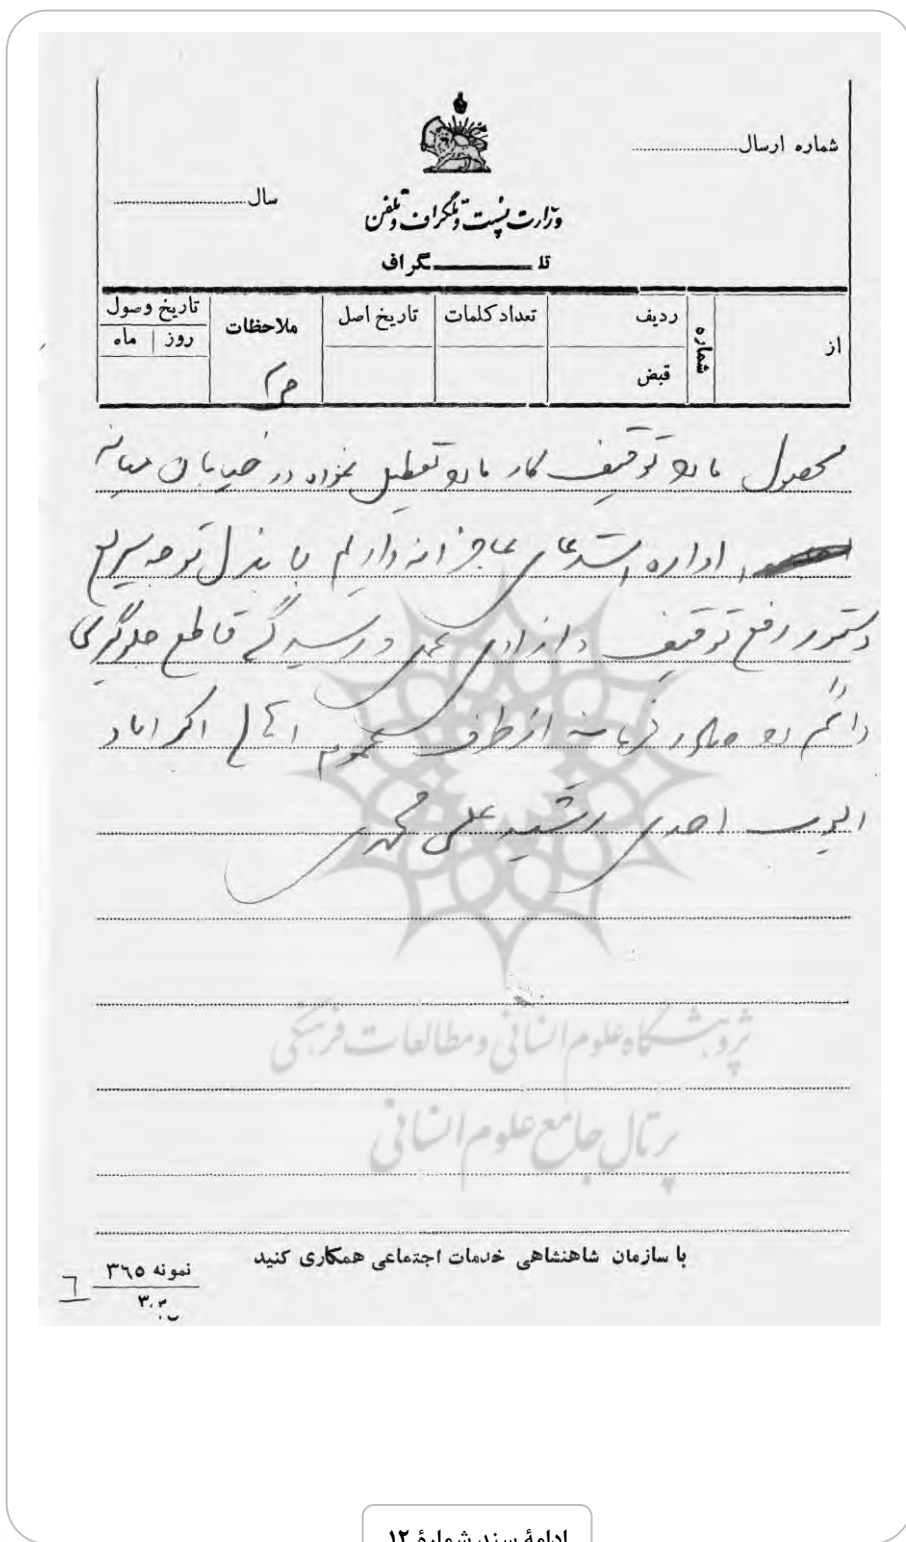 شماره ارسال
سال
وزارت پست و تلگراف و تلفن
تلگراف
از
شماره
ردیف
قبض
تعداد کلمات
تاریخ اصل
ملاحظات
تاریخ وصول
روز
ماه
محصول مارو توقیف کار مارو تعطیل نموده در خیابان میانه
اداره استدعای عاجزانه داریم با بذل توجه سریع
دستور رفع توقیف و ازادی و رسیدگی قاطع جلوگیری
دائم رو صادر فرمائید از طرف عموم اهالی اکراباد
ایوب احدی رشید علی محمدی
پژوهشگاه علوم انسانی و مطالعات فرهنگی
پرتال جامع علوم انسانی
با سازمان شاهنشاهی خدمات اجتماعی همکاری کنید
نمونه ۳۶۵
ادامۀ سند شمارۀ ۱۲